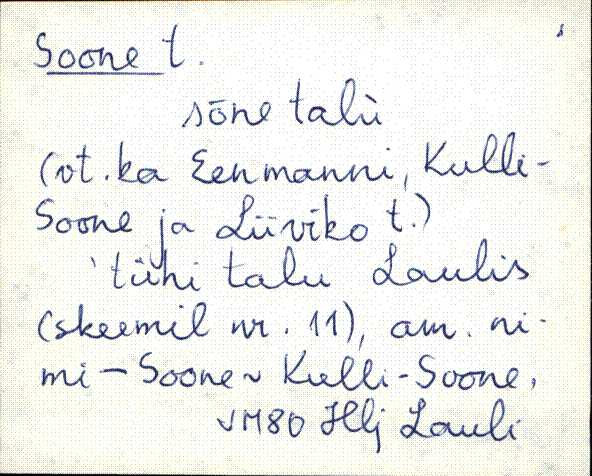 Soone t.
sōne talu
(vt. ka Eenmanni, Kulli-
Soone ja Liiviko t.)
'tühi talu Laulis
(skeemil nr. 11), am. ni-
mi – Soone ~ Kulli-Soone,
VM80 Hlj Lauli